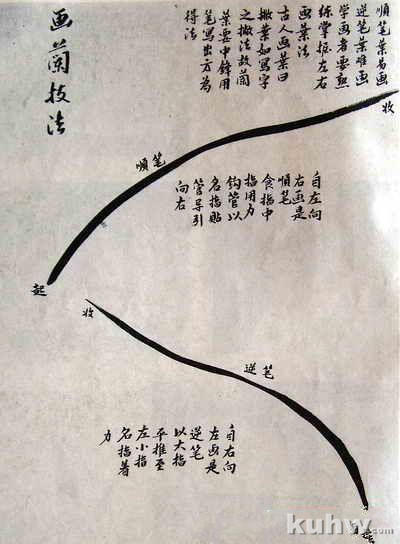 順笔葉易画
逆笔葉难画
学画者要熟
练掌握左右
画葉法
古人画葉曰
撇葉如寫字
之撇法故蘭
葉要中鋒用
笔寫出方為
得法
画蘭技法
收
順笔
起
自左向
右画是
順笔
食指中
指用力
钩管以
名指貼
管导引
向右
收
逆笔
自右向
左画是
逆笔
以大指
平推至
左小指
名指着
力
kuhw
.com